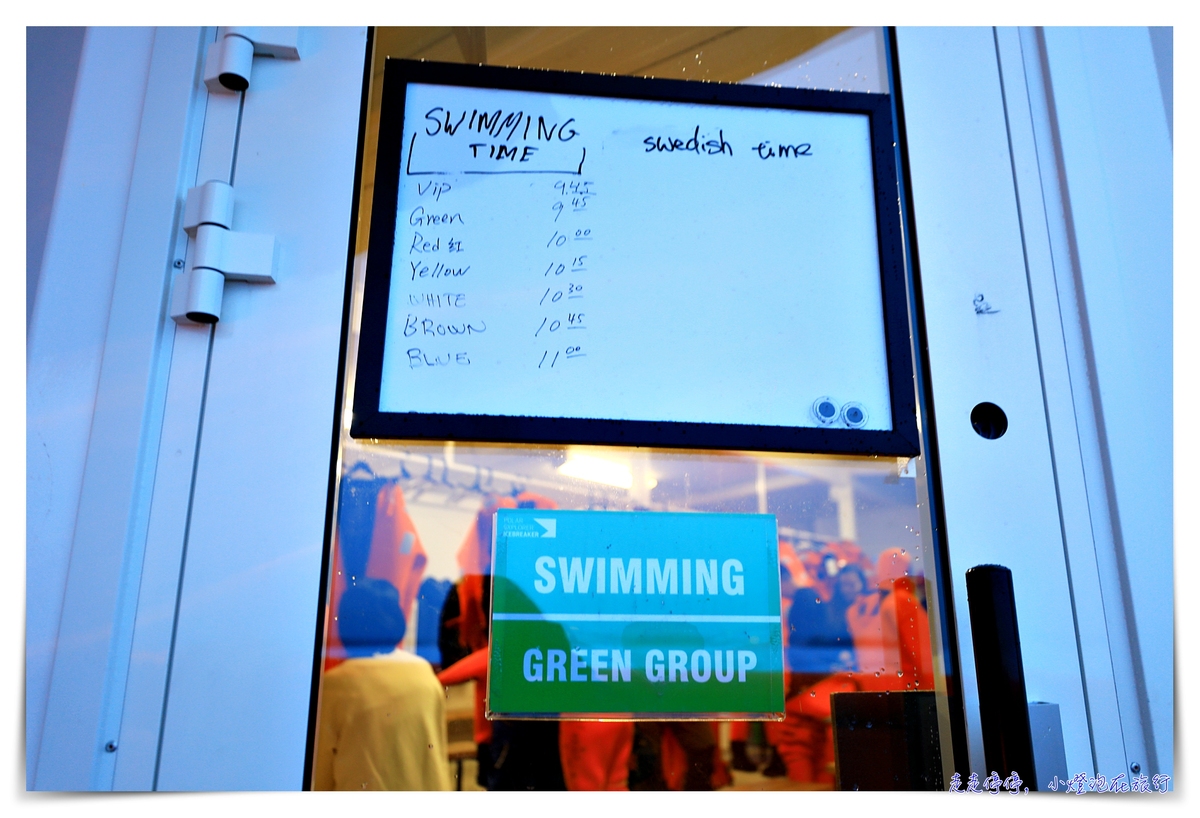 SWIMMING
TIME
swedish time
Vip 9.45
Green 9 45
Red 紅 10 00
Yellow 10 15
WHITE 10 30
BROWN 10 45
BLUE 11 00
POLAR
EXPLORER
ICEBREAKER
SWIMMING
GREEN GROUP
走走停停, 小燈泡在旅行